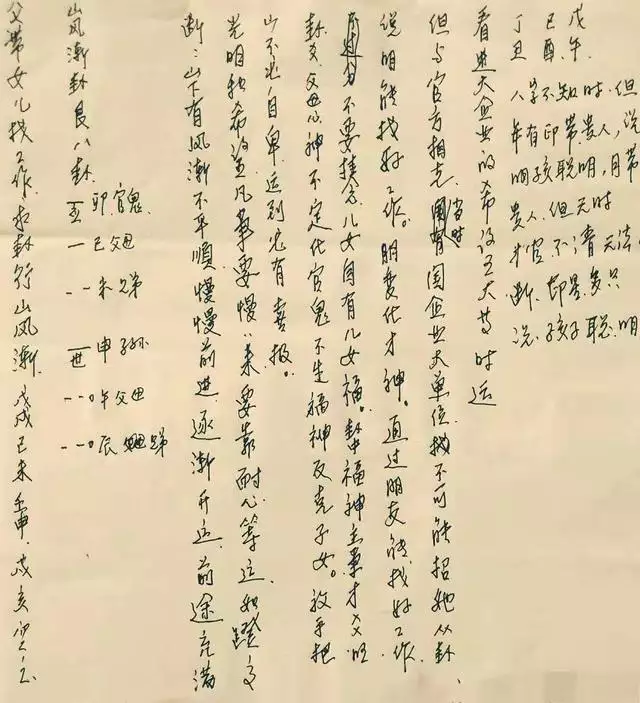 父带女儿找工作.求卦行山风渐.戊戌己未壬申.戌亥空亡.
山风渐卦艮八卦.
应 卯官鬼.
巳父母
未兄弟
世 申子孙
午父母
辰 兄弟
渐：山下有风渐不平顺.慢慢前进.逐渐开运.前途充满
光明和希望凡事要慢慢来要靠耐心等运.如蹬高
山不必自卑.运到必有喜报。
卦爻父母心神不定化官鬼不生福神反克子女。放手把
不要挂念儿女自有儿女福。卦中福神主事才爻旺
说明能找好工作.明变化才神。通过朋友能找好工作.
但与官方相克.国企业大单位找不可能招她从卦.
看进大企业的希望不大等时运
戊.午
己酉.
丁丑
八字不知时.但
年有印带贵人,说
明孩聪明,月带
贵人.但无时
才官不清无法
断.都是多只
说.孩子聪明